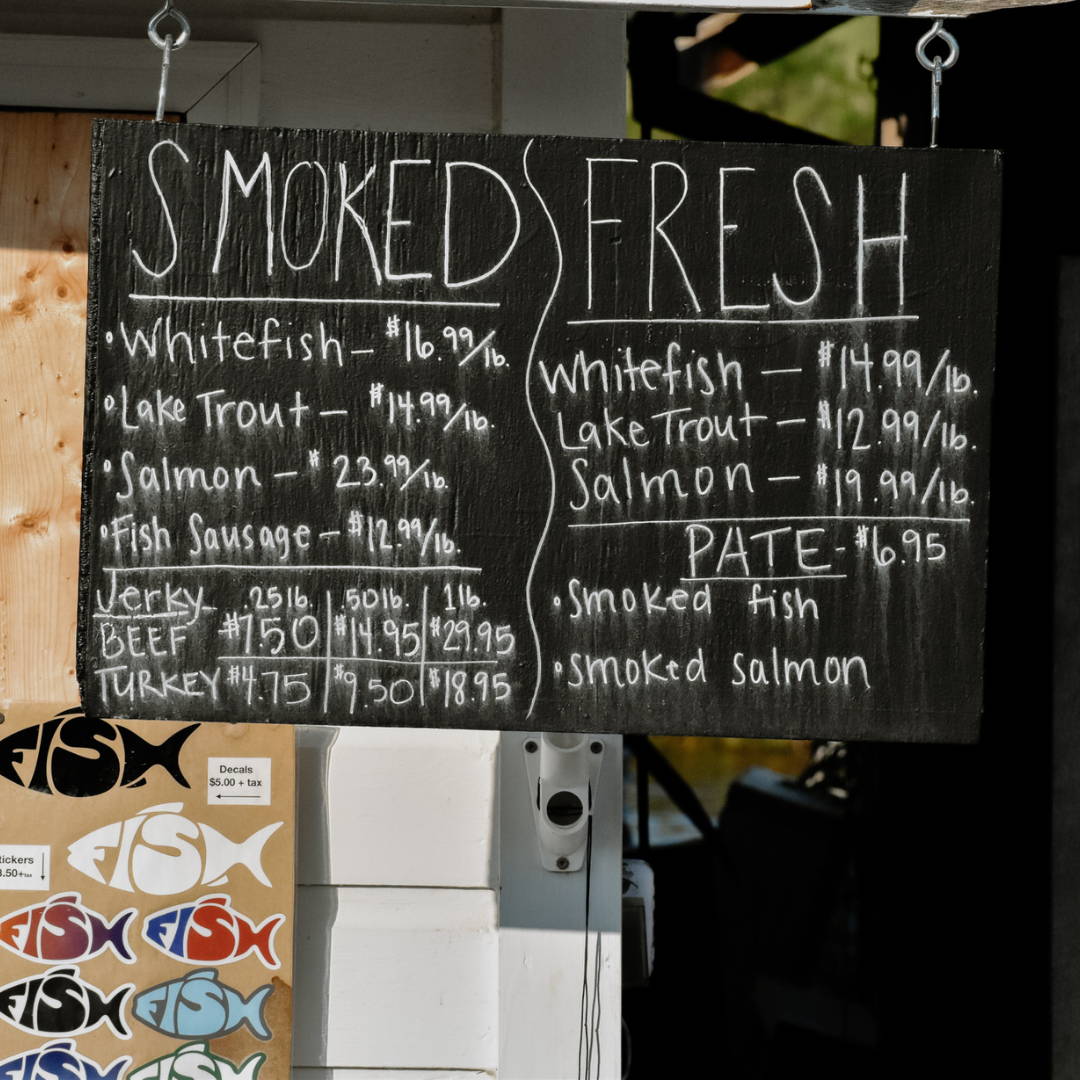 SMOKED
•Whitefish – $16.99/lb.
•Lake Trout – $14.99/lb.
•Salmon – $23.99/lb.
•Fish Sausage – $12.99/lb.
Jerky .25lb. .50lb. 1lb.
BEEF $7.50 $14.95 $29.95
TURKEY $4.75 $9.50 $18.95
FRESH
Whitefish – $14.99/lb.
Lake Trout – $12.99/lb.
Salmon – $19.99/lb.
PATE - $6.95
•Smoked fish
•smoked salmon
FISH
Decals
$5.00 + tax
FISH
FISH
FISH
FISH
FISH
FISH
FISH